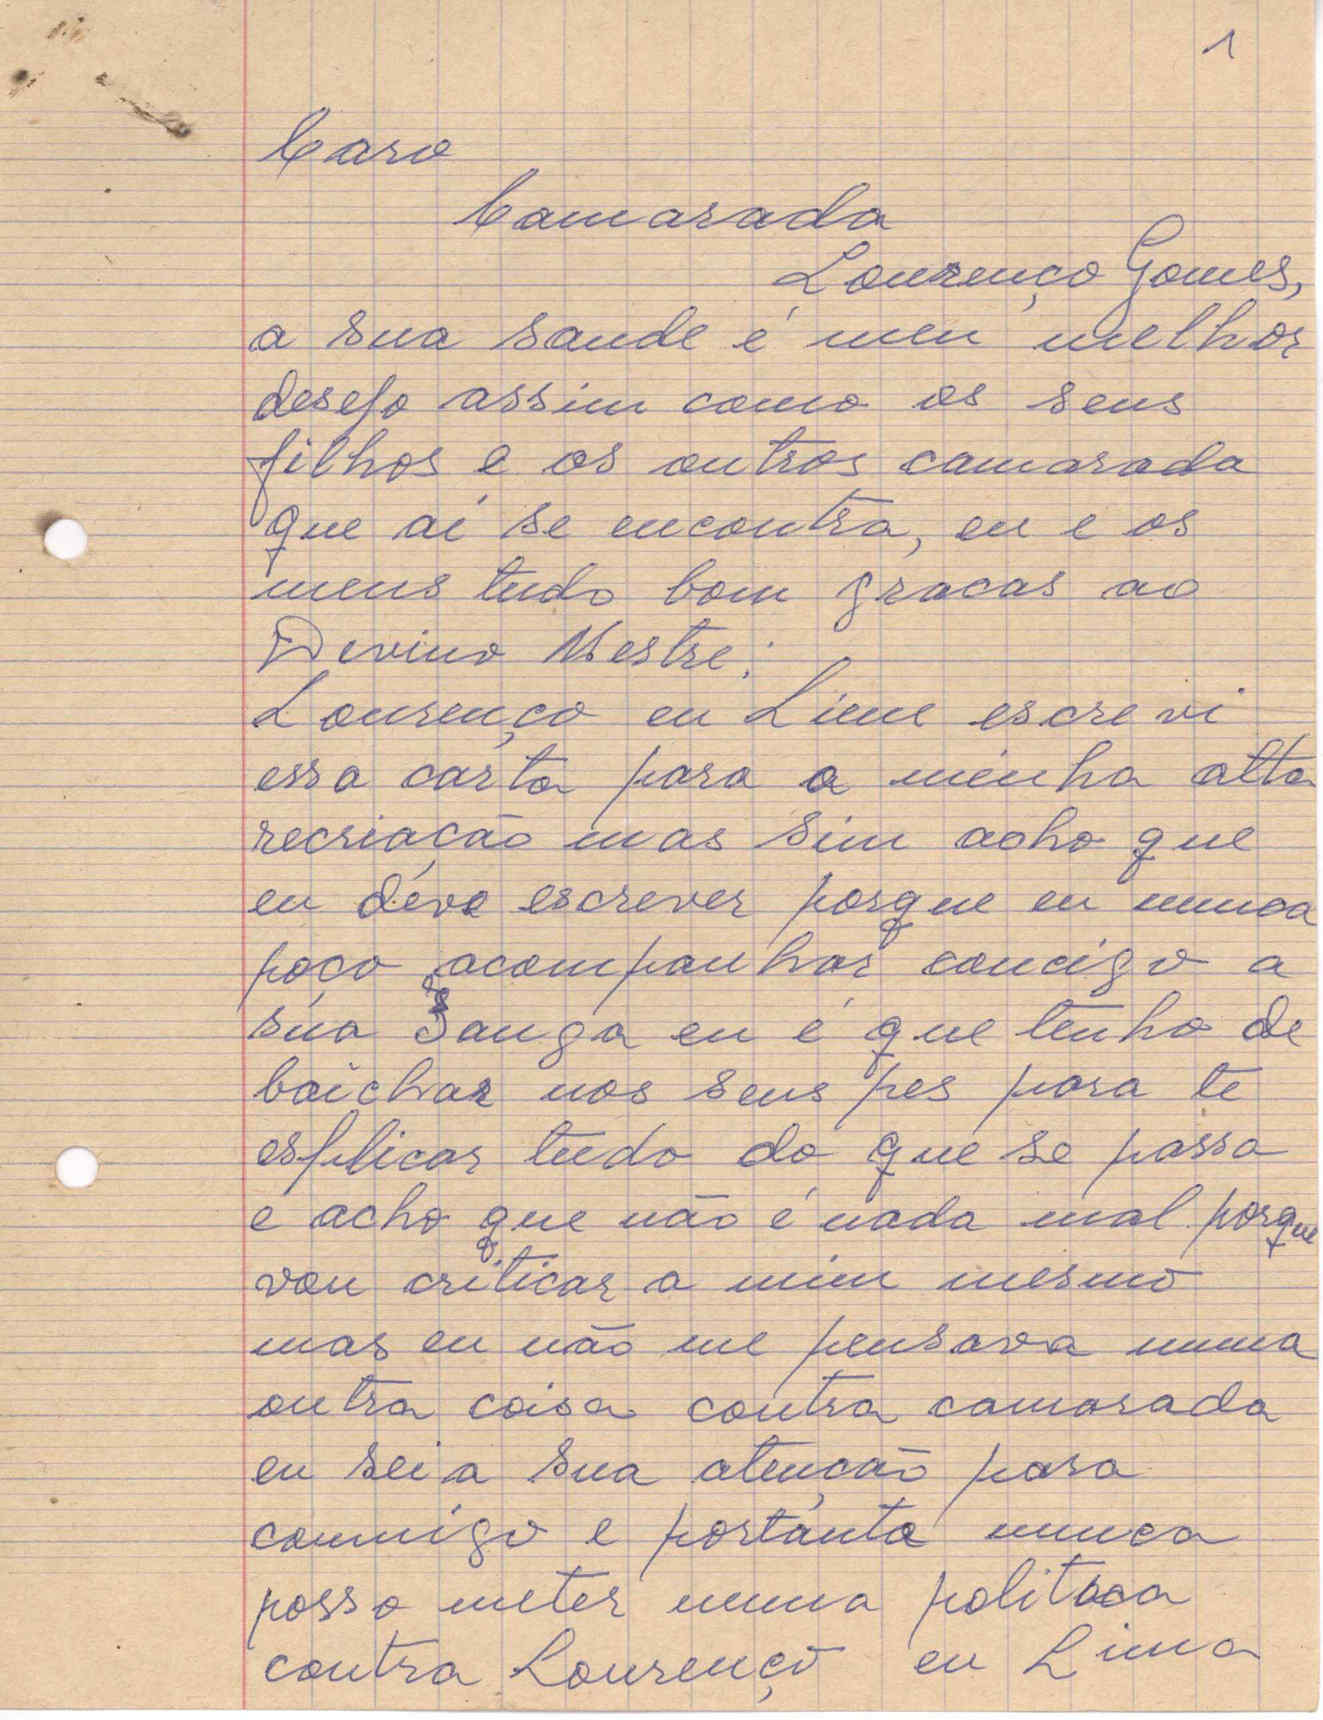 1
Caro
Camarada
Lourenço Gomes,
a sua saude é meu melhor
desejo assim como os seus
filhos e os outros camarada
que aí se encontra, eu e os
meus tudo bom gracas ao
Devino Mestre;
Lourenço eu Lime escrevi
essa carta para a minha alta
recriação mas sim acho que
eu deve escrever porque eu nunca
poço acompanhar concigo a
sua Zanga eu é que tenho de
baichar nos seus pes para te
esplicar tudo do que se passa
e acho que não é nada mal porque
vou criticar a mim mesmo
mas eu não me pensava numa
outra coisa contra camarada
eu sei a sua atenção para
conmigo e portanto nunca
posso meter numa politica
contra Lourenço eu Lima